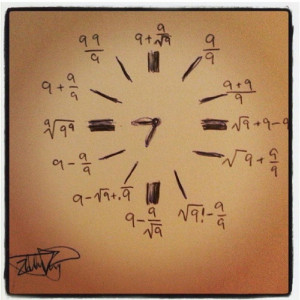 99/9
9+9/√9
9/9
9+9/9
(9+9)/9
⁹√9⁹
√9+9-9
9-9/9
√9+9/9
9-√9+.9
9-9/√9
√9!-9/9